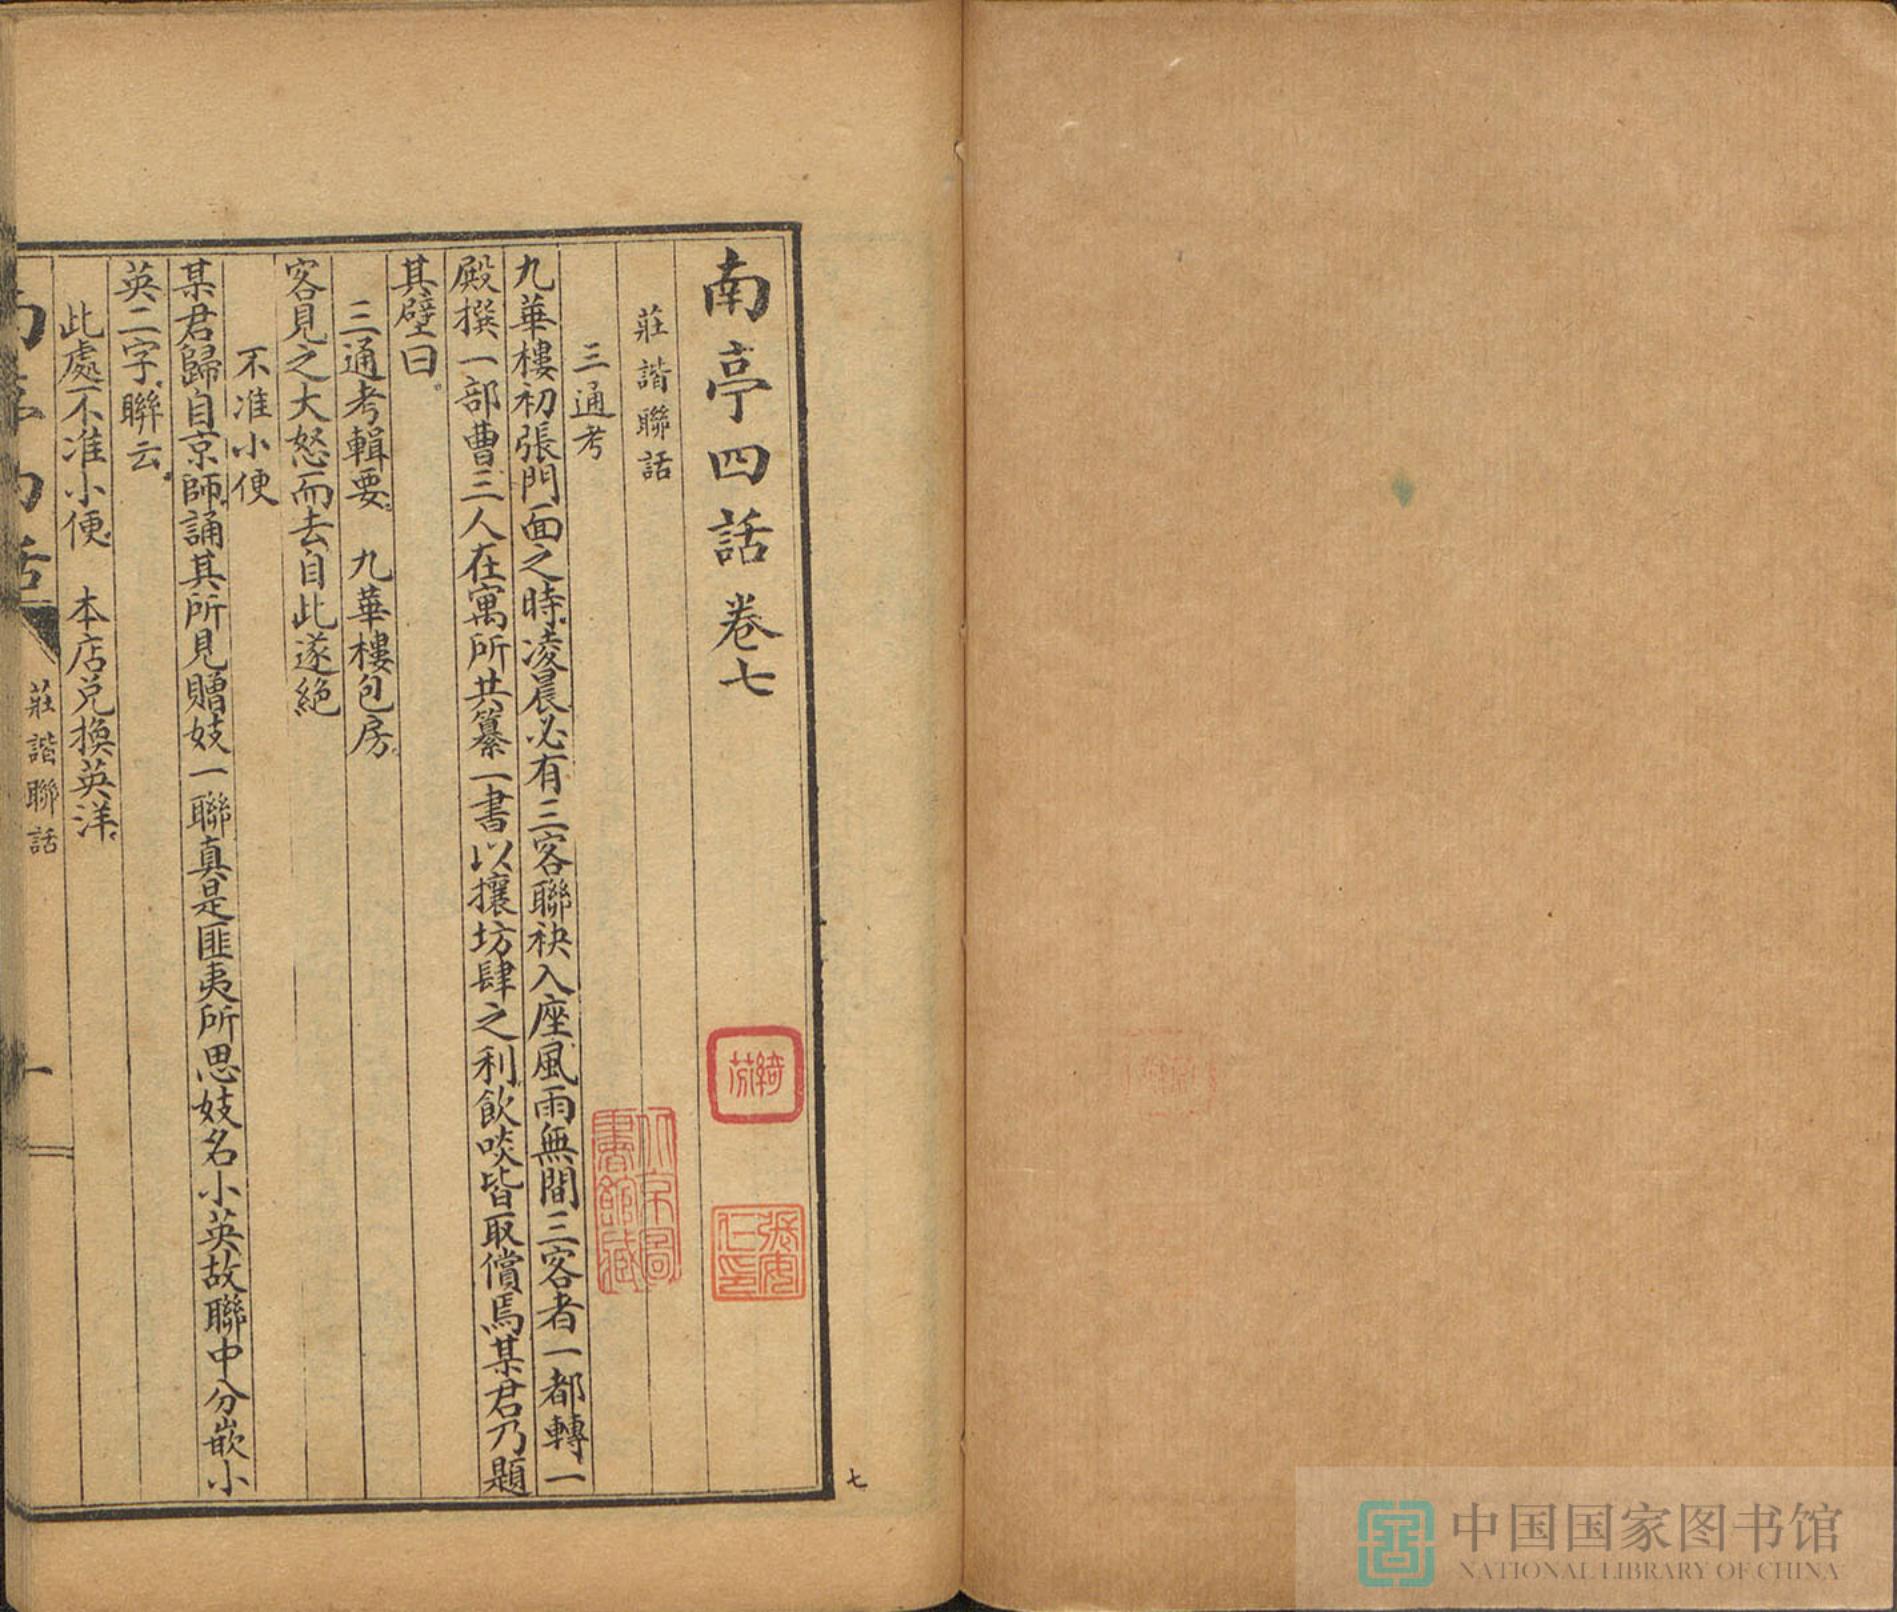 南亭四話卷七
莊諧聯話
三通考
九華樓初張門面之時。凌晨必有三客聯袂入座。風雨無間。三客者一都轉一
殿撰一部曹。三人在寓所共纂一書以攘坊肆之利。飲啖皆取償焉。某君乃題
其壁曰。
三通考輯要。 九華樓包房。
客見之大怒而去自此遂絕
不准小便
某君歸自京師。誦其所見贈妓一聯真是匪夷所思妓名小英故聯中分嵌小
英二字。聯云。
此處不准小便。 本店兌換英洋。
莊諧聯話
一
七
綺蓀
張安仁印
北京圖書館藏
中国国家图书馆
NATIONAL LIBRARY OF CHINA